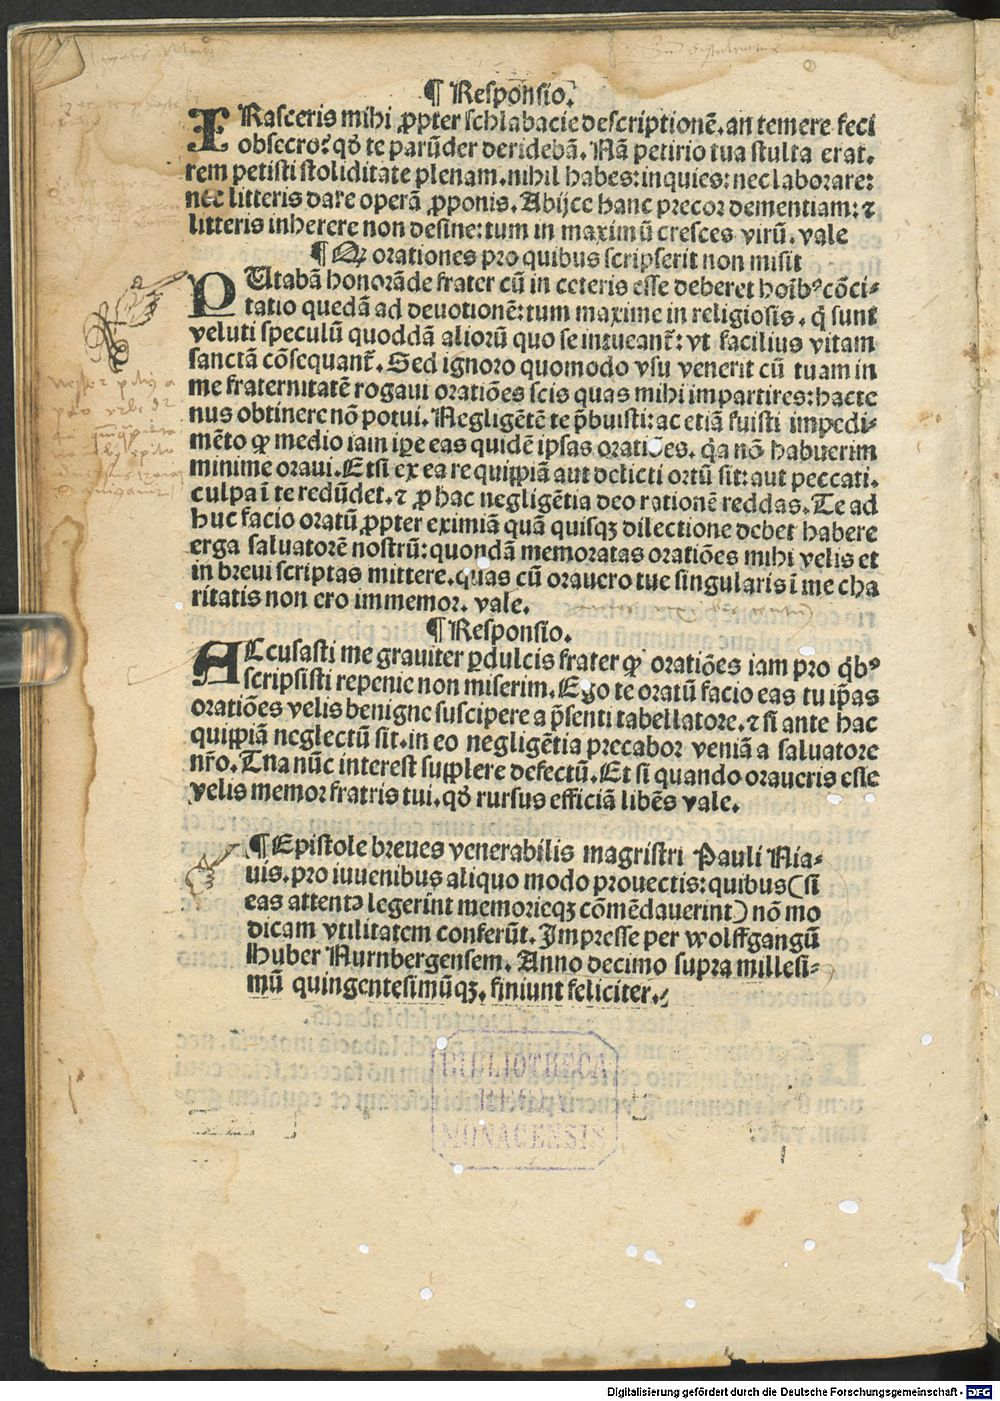 ¶ Responsio.
IRasceris mihi ꝓpter schlabacie descriptionē. an temere feci
obsecro? qđ te parūder deridebā. Nā petitio tua stulta erat.
rem petisti stoliditate plenam. nihil habes: inquies: nec laborare:
nec litteris dare operā ꝓponis. Abijce hanc precor dementiam: ⁊
litteris inherere non desine: tum in maximū cresces virū. vale
¶ Qꝫ orationes pro quibus scripserit non misit
PUtabā honorāde frater cū in ceteris esse deberet hoīb⁹ cōci⸗
tatio quedā ad deuotionē: tum maxime in religiosis. q̄ sunt
veluti speculū quoddā aliorū quo se intueant̄: vt facilius vitam
sanctā cōsequant̄. Sed ignoro quomodo vsu venerit cū tuam in
me fraternitatē rogaui oratiōes scis quas mihi impartires: hacte
nus obtinere nō potui. Negligētē te p̄buisti: ac etiā fuisti impedi⸗
mēto ꝙ medio iam ip̄e eas quidē ipsas oratiōes. q̄a nō habuerim
minime oraui. Etsi ex ea re quippiā aut delicti ortū sit: aut peccati.
culpa ī te redūdet. ⁊ ꝓ hac negligētia deo rationē reddas. Te ad
huc facio oratū ꝓpter eximiā quā quisqꝫ dilectione debet habere
erga saluatorē nostrū: quondā memoratas oratiōes mihi velis et
in breui scriptas mittere. quas cū orauero tue singularis ī me cha
ritatis non ero immemor. vale.
¶ Responsio.
ACcusasti me grauiter ꝑdulcis frater ꝙ oratiōes iam pro q̄b⁹
scripsisti repente non miserim. Ego te oratū facio eas tu ip̄as
oratiōes velis benigne suscipere a p̄senti tabellatore. ⁊ si ante hac
quippiā neglectū sit. in eo negligētia precabor veniā a saluatore
nr̄o. Tua nūc interest supplere defectū. Et si quando oraueris esse
velis memor fratris tui. qđ rursus efficiā libēs vale.
¶ Epistole breues venerabilis magristri Pauli Nia⸗
uis. pro iuuenibus aliquo modo prouectis: quibus (si
eas attente legerint memorieqꝫ cōmēdauerint) nō mo
dicam vtilitatem conferūt. Impresse per wolffgangū
Huber Nurnbergensem. Anno decimo supra millesi⸗
mū quingentesimūqꝫ. finiunt feliciter.
BIBLIOTHECA
REGIA
MONACENSIS
Digitalisierung gefördert durch die Deutsche Forschungsgemeinschaft - DFG